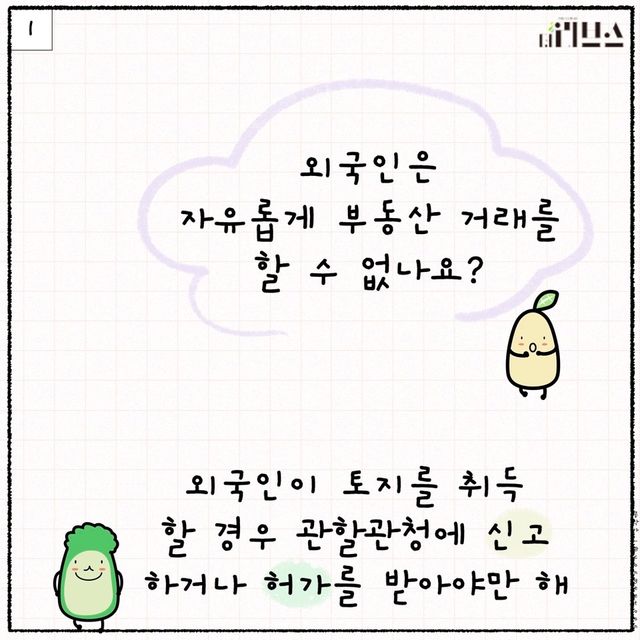 1
외국인은
자유롭게 부동산 거래를
할 수 없나요?
외국인이 토지를 취득
할 경우 관할관청에 신고
하거나 허가를 받아야만 해